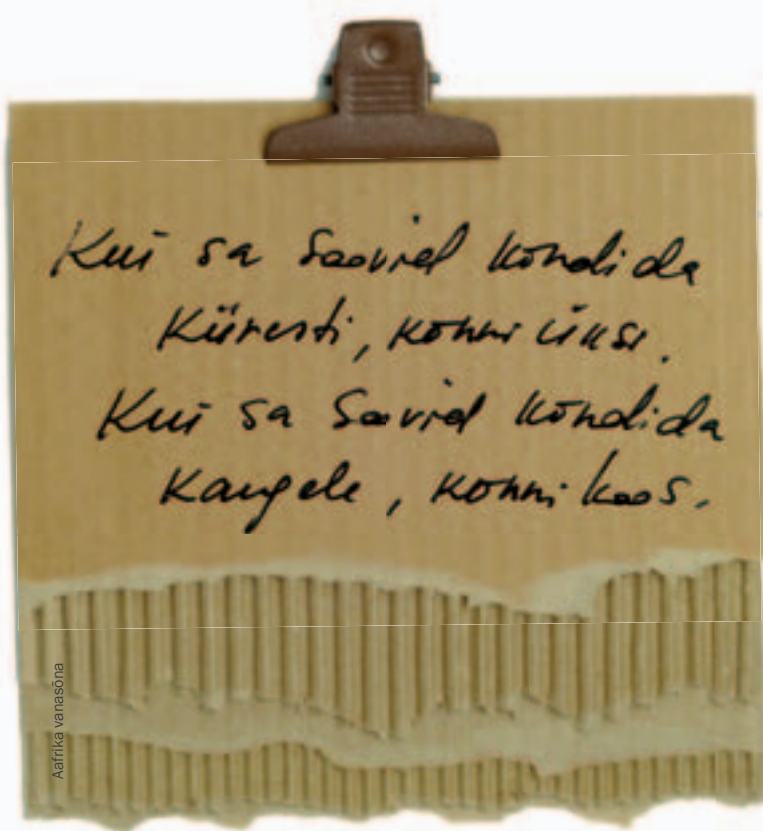 Kui sa soovid kõndida
kiiresti, kõnni üksi.
Kui sa soovid kõndida
kaugele, kõnni koos.
Aafrika vanasõna